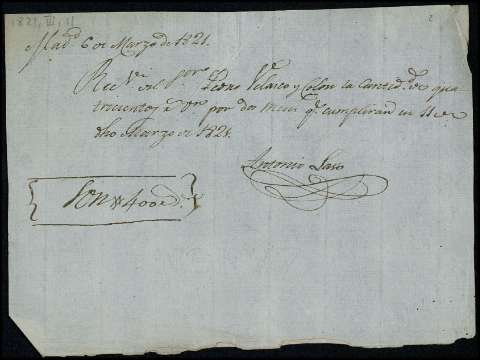 1821, III, 11
2
Mad.d 6 de Marzo de 1821.
Rec.vi del Pedro Velasco y Colon la Cantid.d de qua
trocientos r.s v.on por dos meses q.e cumpliran en 11 de
dho Marzo de 1821.
Antonio Laso
Son 400 r.s